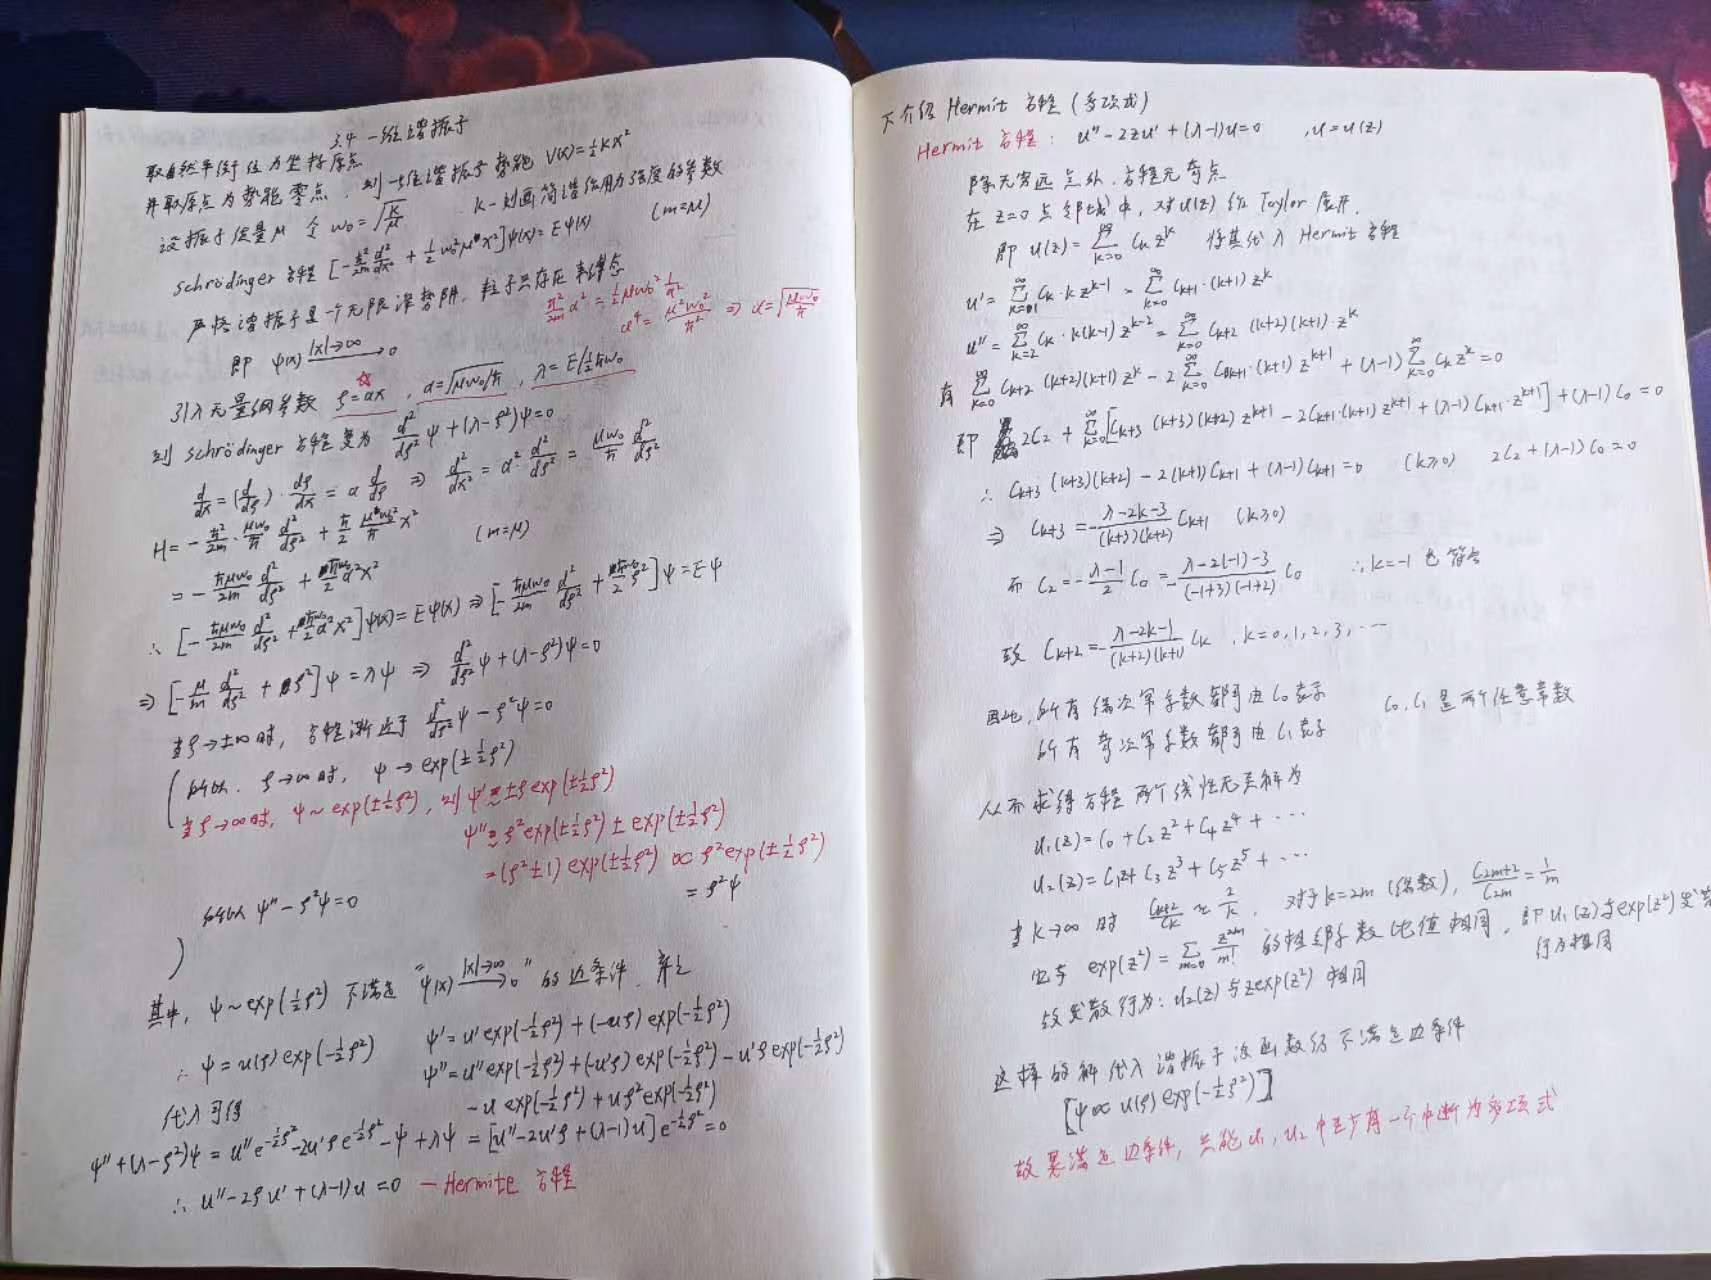 3.4 一维谐振子
取自然平衡位为坐标原点
并取原点为势能零点, 则一维谐振子势能 V(x)=½Kx²
K-刻画简谐作用力强度的参数
设振子质量μ 令 w₀=√(K/μ) (m=μ)
Schrödinger 方程 [-ħ²/2m d²/dx² + ½w₀²μx²]ψ(x)=Eψ(x)
严格谐振子是一个无限深势阱, 粒子只存在束缚态
ħ²/2m α² = ½μw₀² 1/α²
α⁴ = μ²w₀²/ħ² ⇒ α=√(μw₀/ħ)
即 ψ(x) —|x|→∞→ 0
引入无量纲参数 ☆ρ=αx, α=√(μw₀/ħ), λ=E/½ħw₀
则 Schrödinger 方程变为 d²/dρ² ψ+(λ-ρ²)ψ=0
d/dx=(d/dρ)·dρ/dx = α d/dρ ⇒ d²/dx² = α² d²/dρ² = μw₀/ħ d²/dρ²
H=-ħ²/2m·μw₀/ħ d²/dρ² + ħ/2 μw₀²/ħ x² (m=μ)
= -ħμw₀/2m d²/dρ² + ħw₀/2 α²x²
∴ [-ħμw₀/2m d²/dρ² + ħw₀/2 α²x²]ψ(x)=Eψ(x) ⇒ [-ħμw₀/2m d²/dρ² + ħw₀/2 ρ²]ψ=Eψ
⇒ [-μ/m d²/dρ² + ρ²]ψ=λψ ⇒ d²/dρ² ψ+(λ-ρ²)ψ=0
当ρ→±∞时, 方程渐近于 d²/dρ² ψ-ρ²ψ=0
( 所以, ρ→∞时, ψ→exp(±½ρ²)
当ρ→∞时, ψ~exp(±½ρ²), 则ψ'≃±ρexp(±½ρ²)
ψ''≃ρ²exp(±½ρ²)±exp(±½ρ²)
=(ρ²±1)exp(±½ρ²) ∝ ρ²exp(±½ρ²)
=ρ²ψ
所以ψ''-ρ²ψ=0
)
其中, ψ~exp(½ρ²) 不满足 "ψ(x) —|x|→∞→ 0" 的边条件, 弃之
∴ ψ=u(ρ)exp(-½ρ²) ψ'=u'exp(-½ρ²)+(-uρ)exp(-½ρ²)
ψ''=u''exp(-½ρ²)+(-u'ρ)exp(-½ρ²)-u'ρexp(-½ρ²)
-uexp(-½ρ²)+uρ²exp(-½ρ²)
代入可得
ψ''+(λ-ρ²)ψ = u''e^{-½ρ²}-2u'ρe^{-½ρ²}-ψ+λψ = [u''-2u'ρ+(λ-1)u]e^{-½ρ²}=0
∴ u''-2ρu'+(λ-1)u=0 —Hermite 方程
下介绍 Hermit 方程 (多项式)
Hermit 方程: u''-2zu'+(λ-1)u=0 , u=u(z)
除无穷远点外, 方程无奇点
在 z=0 点邻域中, 对u(z) 作 Taylor 展开,
即 u(z)=∑_{k=0}^∞ C_k z^k 将其代入 Hermit 方程
u'=∑_{k=1}^∞ C_k·k z^{k-1} = ∑_{k=0}^∞ C_{k+1}·(k+1)z^k
u''=∑_{k=2}^∞ C_k·k(k-1)z^{k-2}=∑_{k=0}^∞ C_{k+2}(k+2)(k+1)·z^k
有 ∑_{k=0}^∞ C_{k+2}(k+2)(k+1)z^k-2∑_{k=0}^∞ C_{k+1}·(k+1)z^{k+1}+(λ-1)∑_{k=0}^∞ C_k z^k=0
即 2C₂+∑_{k=0}^∞[C_{k+3}(k+3)(k+2)z^{k+1}-2C_{k+1}·(k+1)z^{k+1}+(λ-1)C_{k+1}·z^{k+1}]+(λ-1)C₀=0
∴ C_{k+3}(k+3)(k+2)-2(k+1)C_{k+1}+(λ-1)C_{k+1}=0 (k≥0) 2C₂+(λ-1)C₀=0
⇒ C_{k+3}=-(λ-2k-3)/((k+3)(k+2)) C_{k+1} (k≥0)
而 C₂=-(λ-1)/2 C₀=-(λ-2(-1)-3)/((-1+3)(-1+2)) C₀ ∴k=-1 也符合
故 C_{k+2}=-(λ-2k-1)/((k+2)(k+1)) C_k , k=0,1,2,3,…
因此, 所有偶次幂系数都可由 C₀ 表示 C₀,C₁ 是两个任意常数
所有奇次幂系数都可由 C₁ 表示
从而求得方程两个线性无关解为
u₁(z)=C₀+C₂z²+C₄z⁴+…
u₂(z)=C₁z+C₃z³+C₅z⁵+…
当 k→∞ 时 C_{k+2}/C_k ≈ 2/k, 对于k=2m (偶数), C_{2m+2}/C_{2m}=1/m
它与 exp(z²)=∑_{m=0}^∞ z^{2m}/m! 的相邻系数比值相同, 即u₁(z)与exp(z²)发散
行为相同
故发散行为: u₂(z)与zexp(z²)相同
这样的解代入谐振子波函数仍不满足边条件
[ψ∝u(ρ)exp(-½ρ²)]
故要满足边条件, 只能u₁, u₂中至少有一个中断为多项式